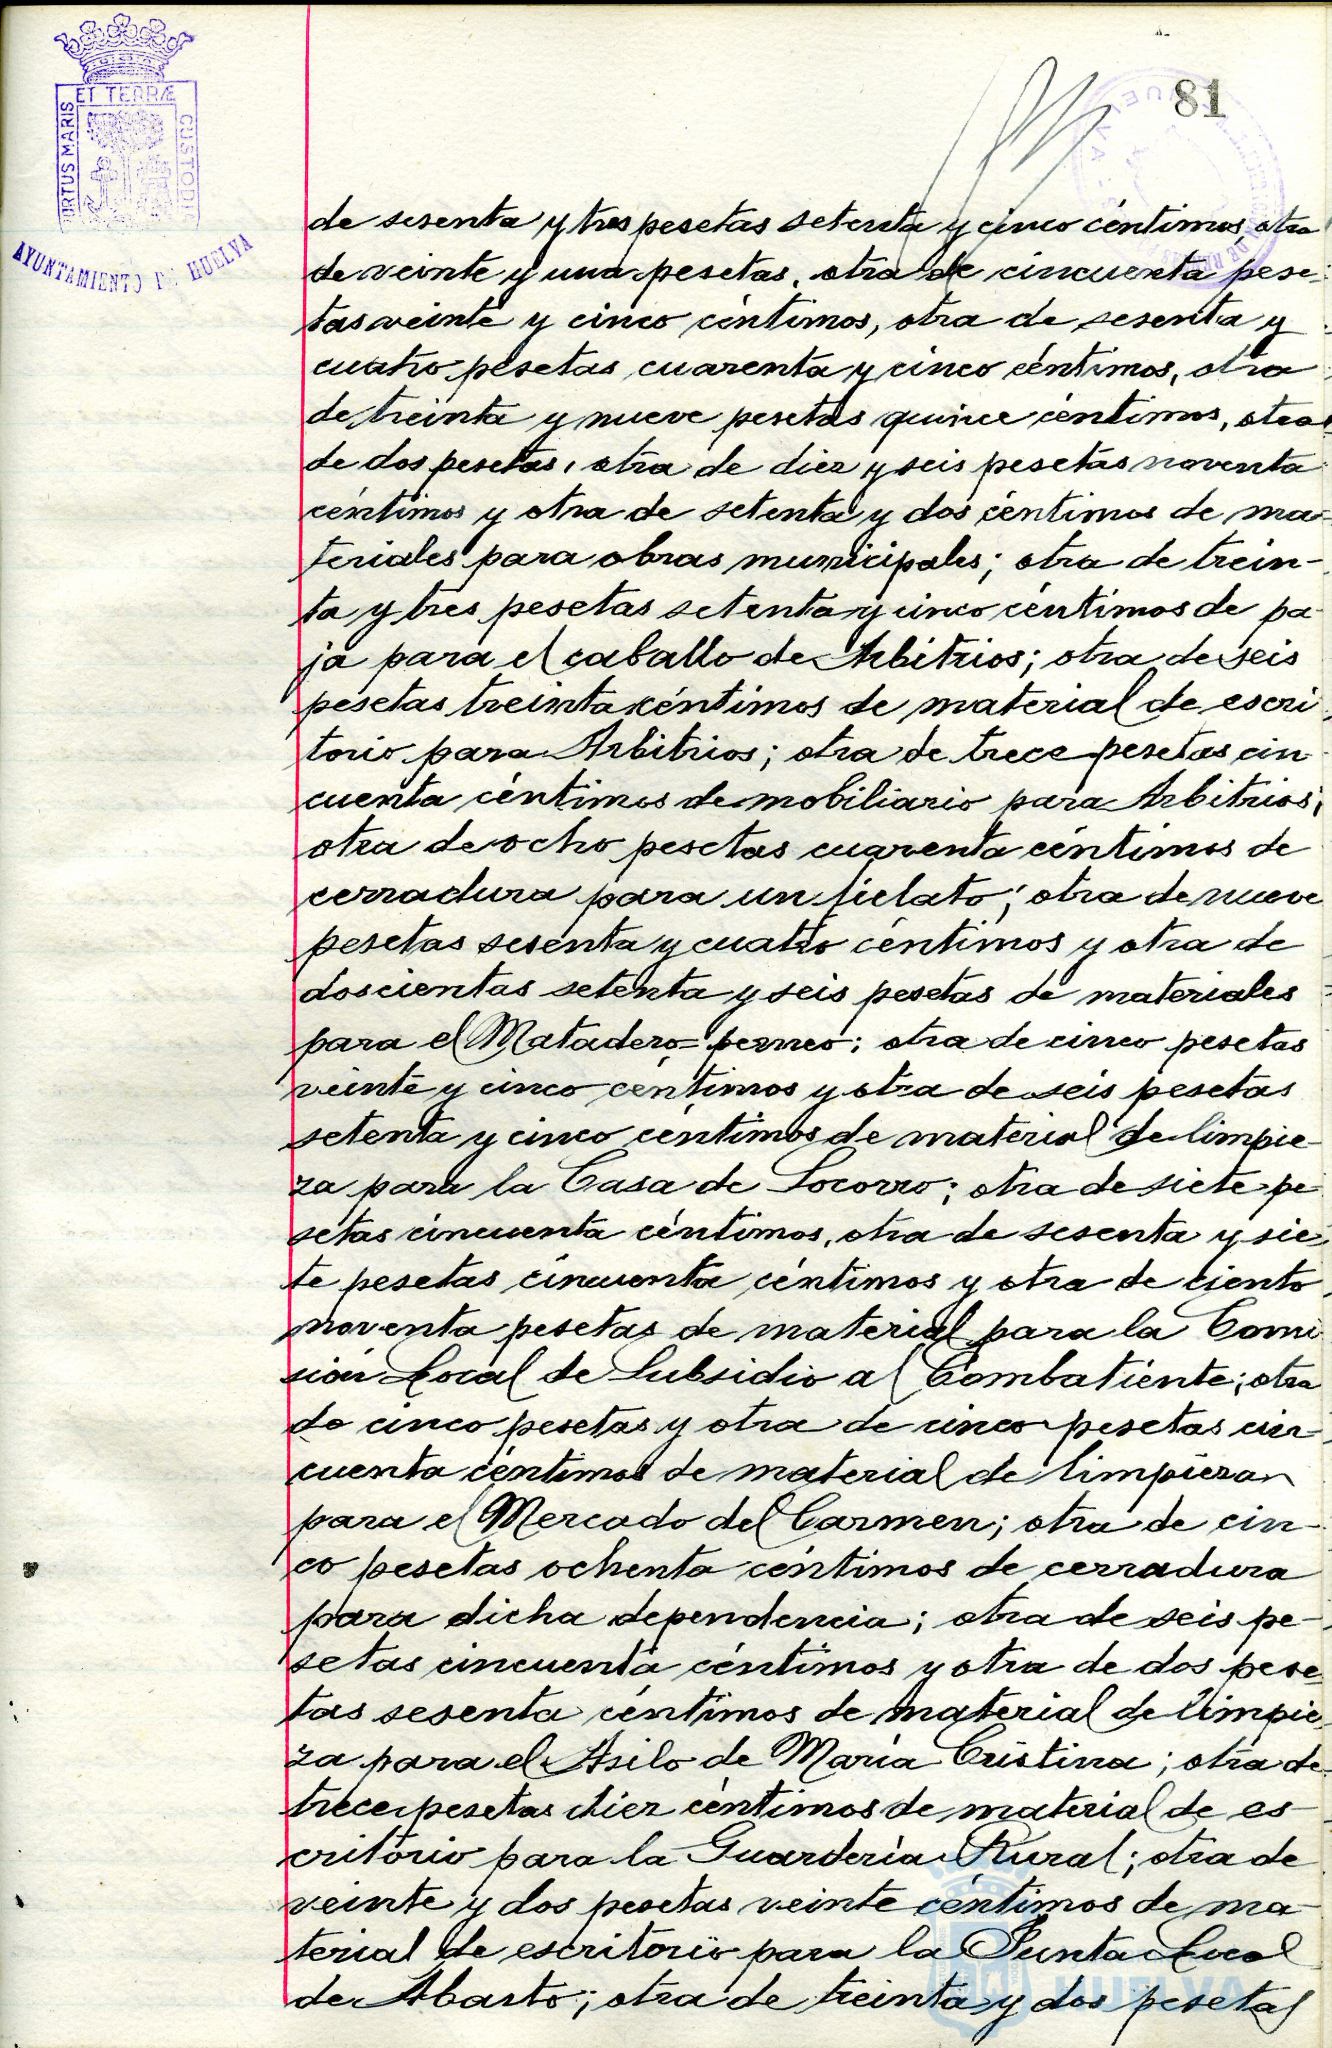 81
ET TERRÆ
PORTUS MARIS
CUSTODIA
AYUNTAMIENTO DE HUELVA
de sesenta y tres pesetas setenta y cinco céntimos, otra
de veinte y una pesetas, otra de cincuenta pese-
tas veinte y cinco céntimos, otra de sesenta y
cuatro pesetas cuarenta y cinco céntimos, otra
de treinta y nueve pesetas quince céntimos, otra
de dos pesetas, otra de diez y seis pesetas noventa
céntimos y otra de setenta y dos céntimos de ma-
teriales para obras municipales; otra de trein-
ta y tres pesetas setenta y cinco céntimos de pa-
ja para el caballo de Arbitrios; otra de seis
pesetas treinta céntimos de material de escri
torio para Arbitrios; otra de trece pesetas cin
cuenta céntimos de mobiliario para Arbitrios;
otra de ocho pesetas cuarenta céntimos de
cerradura para un fielato; otra de nueve
pesetas sesenta y cuatro céntimos y otra de
doscientas setenta y seis pesetas de materiales
para el Matadero perneo; otra de cinco pesetas
veinte y cinco céntimos y otra de seis pesetas
setenta y cinco céntimos de material de limpie-
za para la Casa de Socorro; otra de siete pe
setas cincuenta céntimos, otra de sesenta y sie-
te pesetas cincuenta céntimos y otra de ciento
noventa pesetas de material para la Comi
sión Local de Subsidio al Combatiente; otra
de cinco pesetas y otra de cinco pesetas cin-
cuenta céntimos de material de limpieza
para el Mercado del Carmen; otra de cin-
co pesetas ochenta céntimos de cerradura
para dicha dependencia; otra de seis pe-
setas cincuenta céntimos y otra de dos pese-
tas sesenta céntimos de material de limpie-
za para el Asilo de María Cristina; otra de
trece pesetas diez céntimos de material de es
critorio para la Guardería Rural; otra de
veinte y dos pesetas veinte céntimos de ma-
terial de escritorio para la Junta Local
de Abasto; otra de treinta y dos pesetas
HUELVA